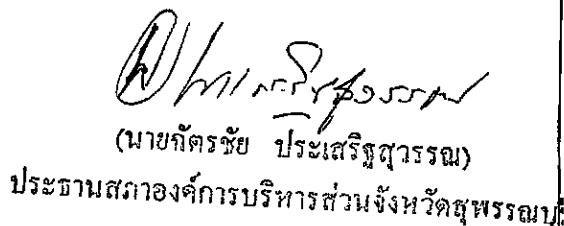 (นายฉัตรชัย ประเสริฐสุวรรณ)
ประธานสภาองค์การบริหารส่วนจังหวัดสุพรรณบุ